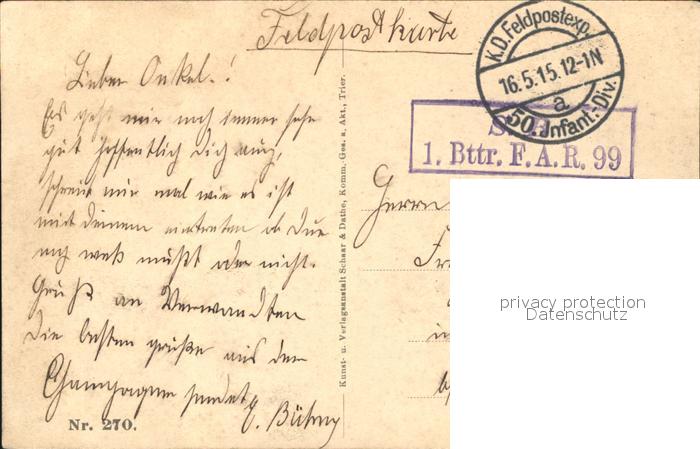 Feldpostkarte
K.D. Feldpostexp.
16.5.15.12-1N
a
50. Infant.-Div.
S.
1. Bttr. F. A. R. 99
Lieber Onkel.!
Es geht mir noch immer sehr
gut hoffentlich dich auch,
schreib mir mal wie es ist
mit deinem eintreten ob Du
noch weg mußt oder nicht.
Gruß an Verwandten
die besten grüße aus der
Champagne sendet
Kunst- u. Verlagsanstalt Schaar & Dathe, Komm. Ges. a. Akt., Trier.
Herrn
Nr. 270.
privacy protection
Datenschutz